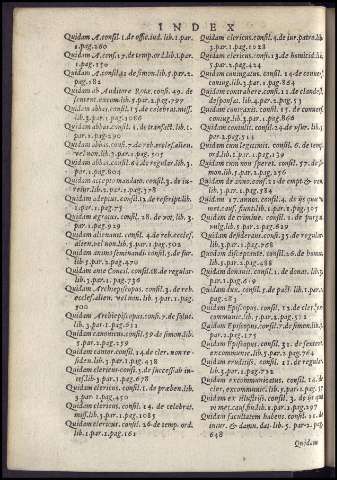 INDEX
Quidam A. consil. 1. de offic. iud. lib. 1. par.
1. pag. 260
Quidam A. cons. 17. de temp. ord. lib. 1. par.
1. pag. 150
Quidam A. consil. 41. de simon. lib. 5. par. 2.
pag. 282
Quidam ab Auditore Rotæ. cons. 49. de
sentent. excom. lib. 5. par. 2. pag. 797
Quidam abbas. consil. 5. de celebrat. miss.
lib. 3. par. 1. pag. 1086
Quidam abbas. consil. 1. de transact. lib. 1.
par. 1. pag. 290
Quidam abbas. cons. 7. de reb. eccles. alien.
vel non. lib. 3. par. 1. pag. 505
Quidam abbas. consil. 61. de regular. lib. 3.
par. 1. pag. 804
Quidam accepto mandato. consil. 3. de iu-
reiur. lib. 2. par. 1. pag. 378
Quidam adeptus. consil. 13. de rescript. lib.
1. par. 1. pag. 73
Quidam ægrotus. consil. 28. de vot. lib. 3.
par. 1. pag. 929
Quidam alienauit. consil. 4. de reb. eccles.
alien. vel non. lib. 3. par. 1. pag. 502
Quidam animo semenandi. consil. 5. de fur.
lib. 5. par. 2. pag. 470
Quidam ante Concil. consil. 28. de regular.
lib. 3. par. 1. pag. 736
Quidam Archiepiscopus. consil. 3. de reb.
eccles. alien. vel non. lib. 3. par. 1. pag.
500
Quidam Archiepiscopus. cons. 7. de solut.
lib. 3. par. 1. pag. 611
Quidam canonicus. consil. 39. de simon. lib.
5. par. 2. pag. 259
Quidam cantor. consil. 14. de cler. non re-
siden. lib. 3. par. 1. pag. 438
Quidam clericus. consil. 3. de success. ab in-
test. lib. 3. par. 1. pag. 678
Quidam clericus. consil. 5. de præben. lib.
3. par. 1. pag. 450
Quidam clericus. consil. 14. de celebrat.
miss. lib. 3. par. 1. pag. 1085
Quidam clericus. consil. 26. de temp. ord.
lib. 1. par. 1. pag. 161
Quidam clericus. consil. 4. de iur. patro. lib.
3. par. 1. pag. 1028
Quidam clericus. cons. 13. de homicid. lib.
5. par. 2. pag. 424
Quidam coniugatus. consil. 14. de conuer.
coniug. lib. 3. par. 1. pag. 864
Quidam contrahere. consil. 21. de cland.
desponsat. lib. 4. par. 2. pag. 53
Quidam coniugatus. consil. 15. de conuer.
coniug. lib. 3. par. 1. pag. 866
Quidam conuenit. consil. 24. de vsur. lib. 5.
par. 2. pag. 514
Quidam cum legitimus. consil. 6. de temp.
ord. lib. 1. par. 1. pag. 139
Quidam cum non speret. consil. 37. de si-
mon. lib. 5. par. 2. pag. 256
Quidam de anno. cons. 21. de empt. &
lib. 3. par. 1. pag. 584
Quidam 17. annor. consil. 4. de iis quæ vi
met. cau. fiunt. lib. 1. par. 1. pag. 135
Quidam de crimine. consil. 21. de purga.
vulg. lib. 5. par. 2. pag. 629
Quidam desiderans. consil. 35. de regular.
lib. 3. par. 1. pag. 768
Quidam discep. ente. consil. 26. de homic.
lib. 5. par. 2. pag. 488
Quidam donauit. consil. 1. de donat. lib. 3.
par. 1. pag. 619
Quidam dux. consil. 5. de pact. lib. 1. par. 1.
pag. 283
Quidam Episcopus. consil. 12. de cler. ex-
commun. lib. 5. par. 2. pag. 512
Quidam Episcopus. consil. 7. de simon. lib. 5.
par. 2. pag. 175
Quidam Episcopus. consil. 31. de senten.
excommun. lib. 5. par. 2. pag. 764
Quidam eruditus. consil. 21. de regular.
lib. 3. par. 1. pag. 732
Quidam excommunicatus. consil. 14. de
cler. excommunic. lib. 5. par. 2. pag.
Quidam ex illustris. consil. 3. de iis quæ
vi met. cau. fiunt. lib. 1. par. 1. pag. 297
Quidam facultatem habens. consil. 21. de
iniur. & damn. dat. lib. 5. par. 2. pag.
648
Quidam